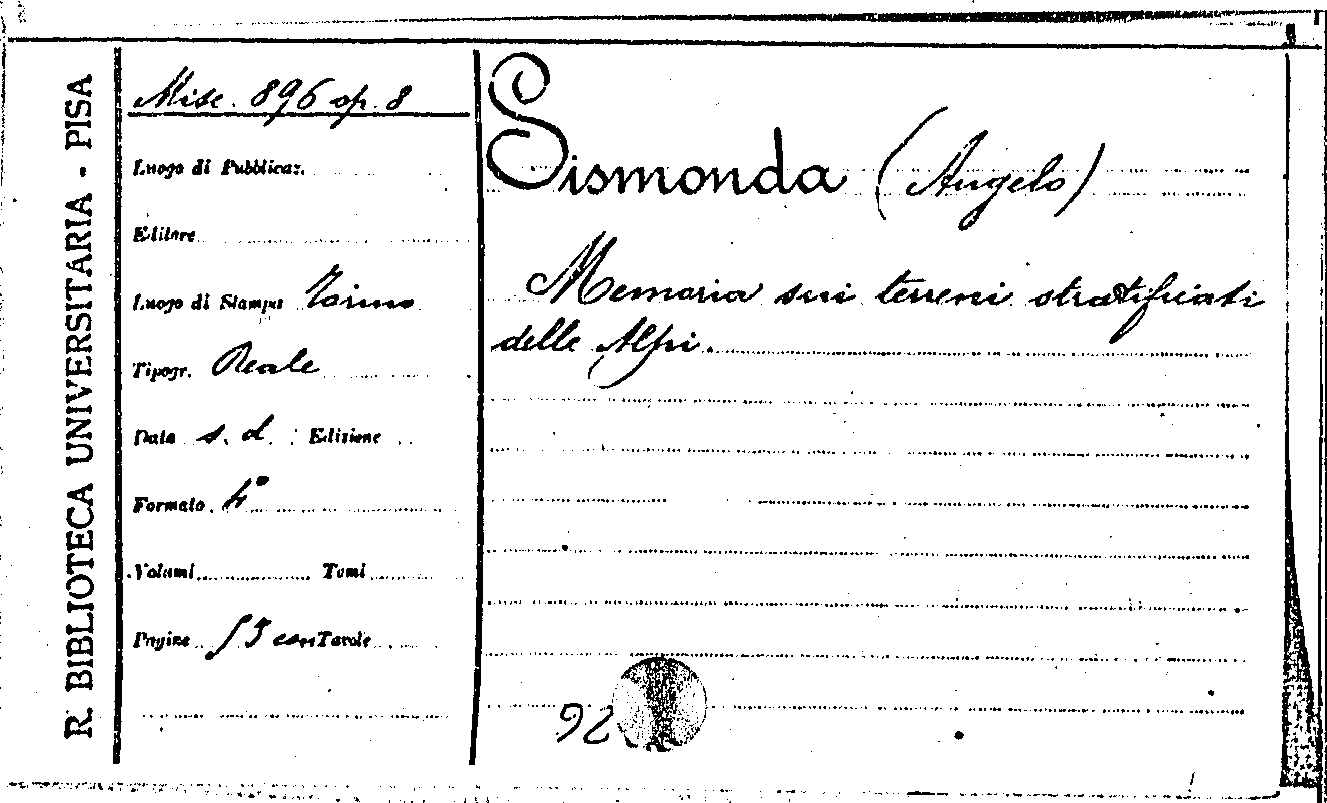 R. BIBLIOTECA UNIVERSITARIA - PISA
Misc. 896 op. 8
Luogo di Pubblicaz.
Editore
Luogo di Stampa Torino
Tipogr. Reale
Data s. d. Edizione
Formato 4°
Volumi Tomi
Pagine 53 con Tavole
Sismonda (Angelo)
Memoria sui terreni stratificati
delle Alpi.
92